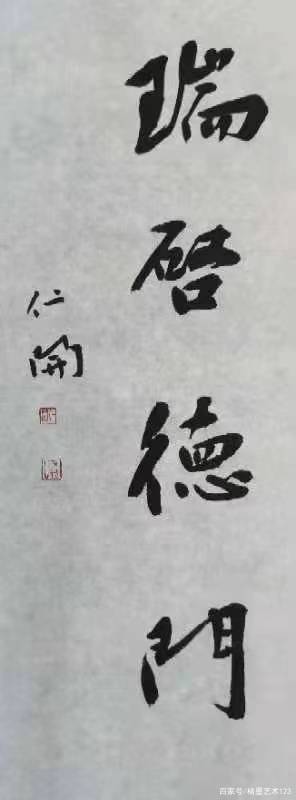 瑞啓德門
仁開
百家号/精墨艺术123